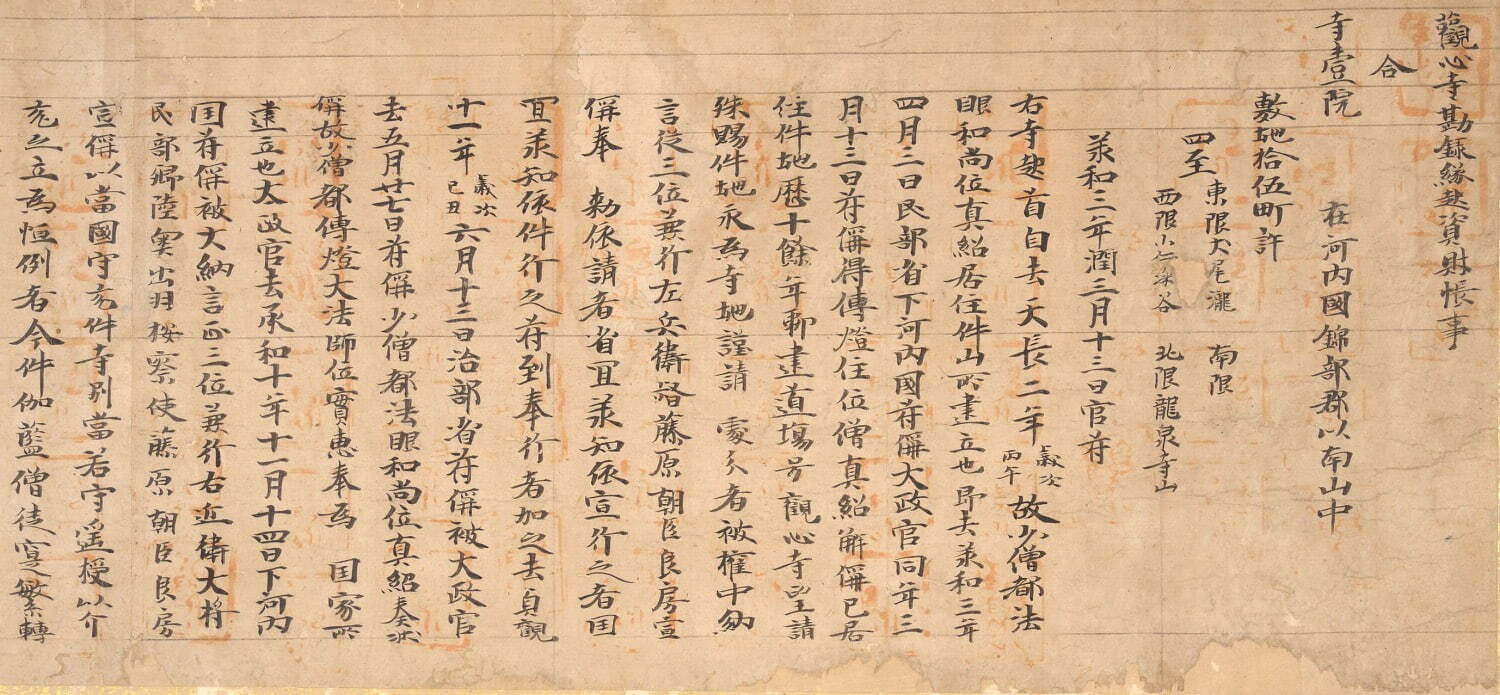 觀心寺勘録縁起資財帳事
合
寺壹院 在河内國錦部郡以南山中
敷地拾伍町許
四至 東限大尾瀧 南限
西限小仁染谷 北限龍泉寺山
承和三年潤三月十三日官符
右寺起首自去天長二年 歳次丙午 故少僧都法
眼和尚位真紹居住件山所建立也即去承和三年
四月二日民部省下河内國符偁大政官同年三
月十三日符偁得傳燈住位僧真紹解偁已居
住件地歴十餘年聊建道場号觀心寺望請
殊賜件地永為寺地謹請 處分者被權中納
言從三位兼行左兵衛督藤原朝臣良房宣
偁奉 勅依請者省冝承知依宣行之者国
冝承知依件行之符到奉行者加之去貞觀
十一年 歳次己丑 六月十三日治部省符偁被大政官
去五月廿七日符偁少僧都法眼和尚位真紹奏状
偁故少僧都傳燈大法師位實惠奉為 国家所
建立也大政官去承和十年十一月十四日下河内
国符偁被大納言正三位兼行右近衛大将
民部卿陸奥出羽桉察使藤原朝臣良房
宣偁以當國守充件寺別當若守遥授以介
充之立為恒例者今件伽藍僧徒寔繁轉